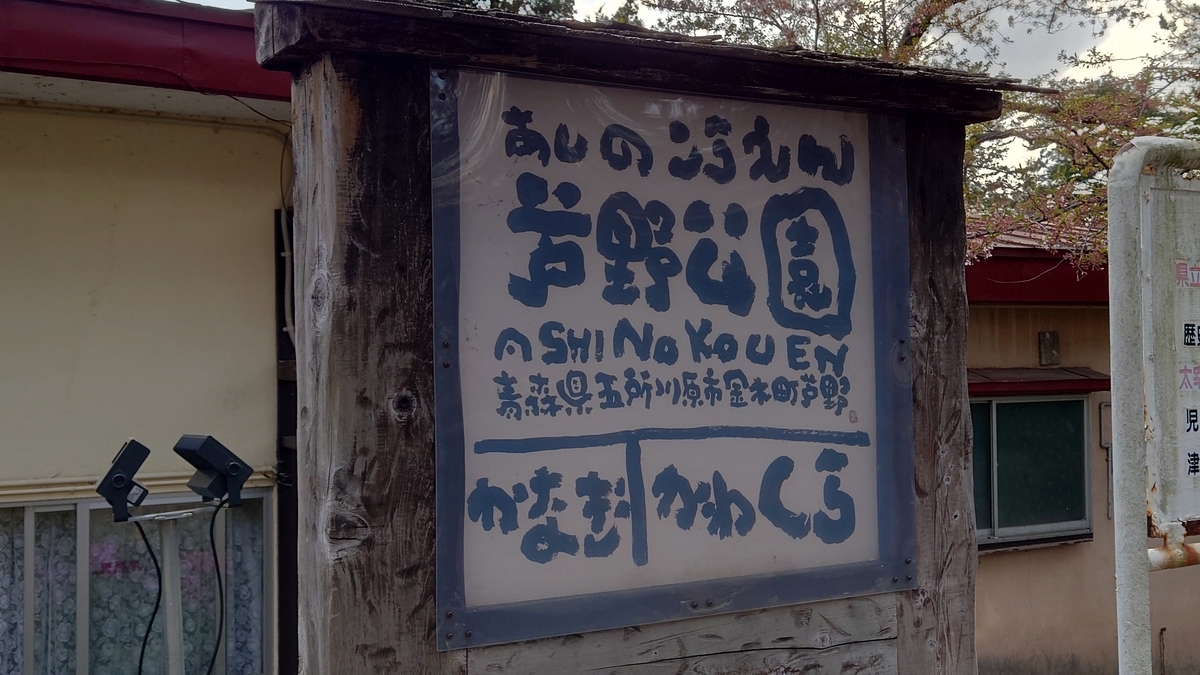 あしのこうえん
芦野公園
ASHINOKOUEN
青森県五所川原市金木町芦野
かなぎ かわくら
県立
歴
太
児
津